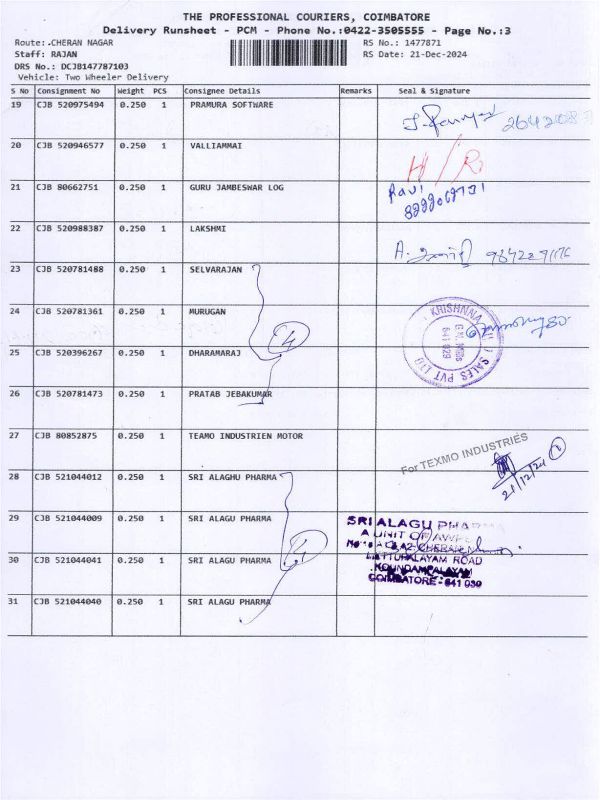 THE PROFESSIONAL COURIERS, COIMBATORE
Delivery Runsheet - PCM - Phone No.:0422-3505555 - Page No.:3
Route:.CHERAN NAGAR
RS No.: 1477871
Staff: RAJAN
RS Date: 21-Dec-2024
DRS No.: DCJB147787103
Vehicle: Two Wheeler Delivery
S No Consignment No Weight PCS Consignee Details Remarks Seal & Signature
19 CJB 520975494 0.250 1 PRAMURA SOFTWARE
20 CJB 520946577 0.250 1 VALLIAMMAI
21 CJB 80662751 0.250 1 GURU JAMBESWAR LOG Ravi
22 CJB 520988387 0.250 1 LAKSHMI
23 CJB 520781488 0.250 1 SELVARAJAN
24 CJB 520781361 0.250 1 MURUGAN
25 CJB 520396267 0.250 1 DHARAMARAJ
26 CJB 520781473 0.250 1 PRATAB JEBAKUMAR
KRISHNNA SALES PVT LTD
27 CJB 80852875 0.250 1 TEAMO INDUSTRIEN MOTOR
For TEXMO INDUSTRIES
21/12/24
28 CJB 521044012 0.250 1 SRI ALAGHU PHARMA
29 CJB 521044009 0.250 1 SRI ALAGU PHARMA
SRI ALAGU PHARMA
A UNIT OF
30 CJB 521044041 0.250 1 SRI ALAGU PHARMA
ROAD
KOUNDAMPALAYAM
COIMBATORE - 641 030
31 CJB 521044040 0.250 1 SRI ALAGU PHARMA